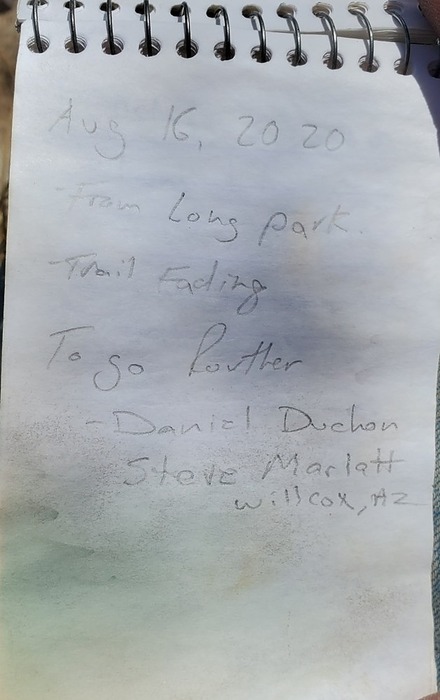 Aug 16, 2020
-From Long park.
-Trail Fading
To go Routher
-Daniel Duchon
Steve Marlatt
willcox, AZ